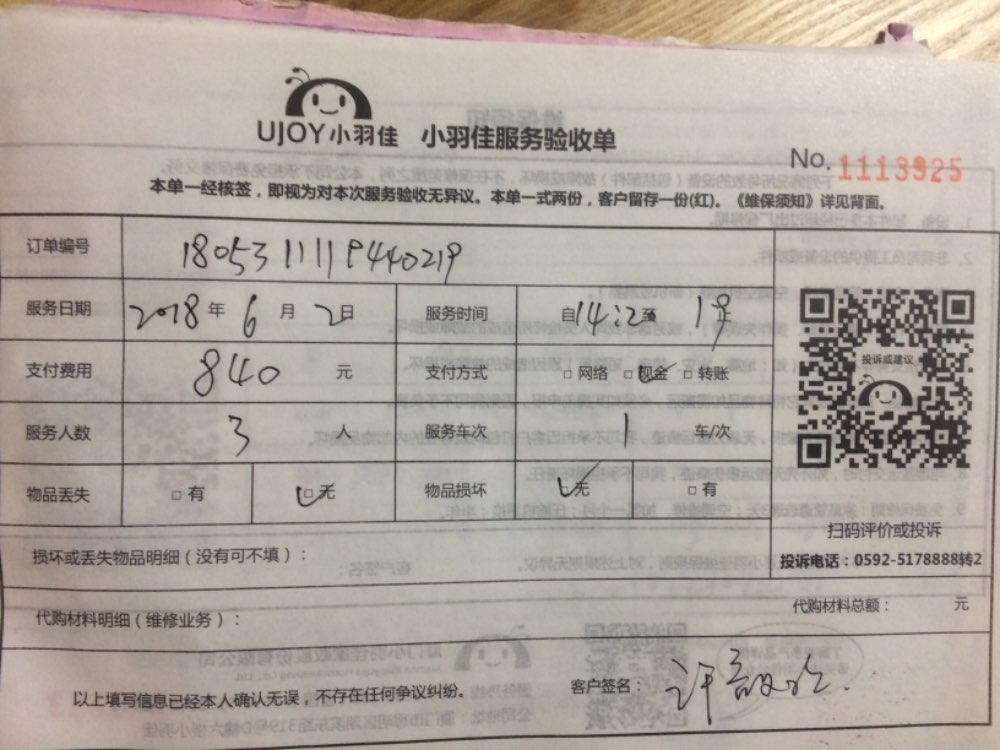 UJOY小羽佳 小羽佳服务验收单
No. 1113925
本单一经核签，即视为对本次服务验收无异议。本单一式两份，客户留存一份(红)。《维保须知》详见背面。
订单编号 18053111119440219
服务日期 2018 年 6 月 2 日 服务时间 自14:2至
支付费用 840 元 支付方式 □ 网络 □ 现金 □ 转账
服务人数 3 人 服务车次 1 车/次
物品丢失 □ 有 □ 无 物品损坏 无 □ 有
投诉或建议
扫码评价或投诉
投诉电话：0592-5178888转2
损坏或丢失物品明细（没有可不填）：
代购材料明细（维修业务）：
代购材料总额： 元
以上填写信息已经本人确认无误，不存在任何争议纠纷。
客户签名：许